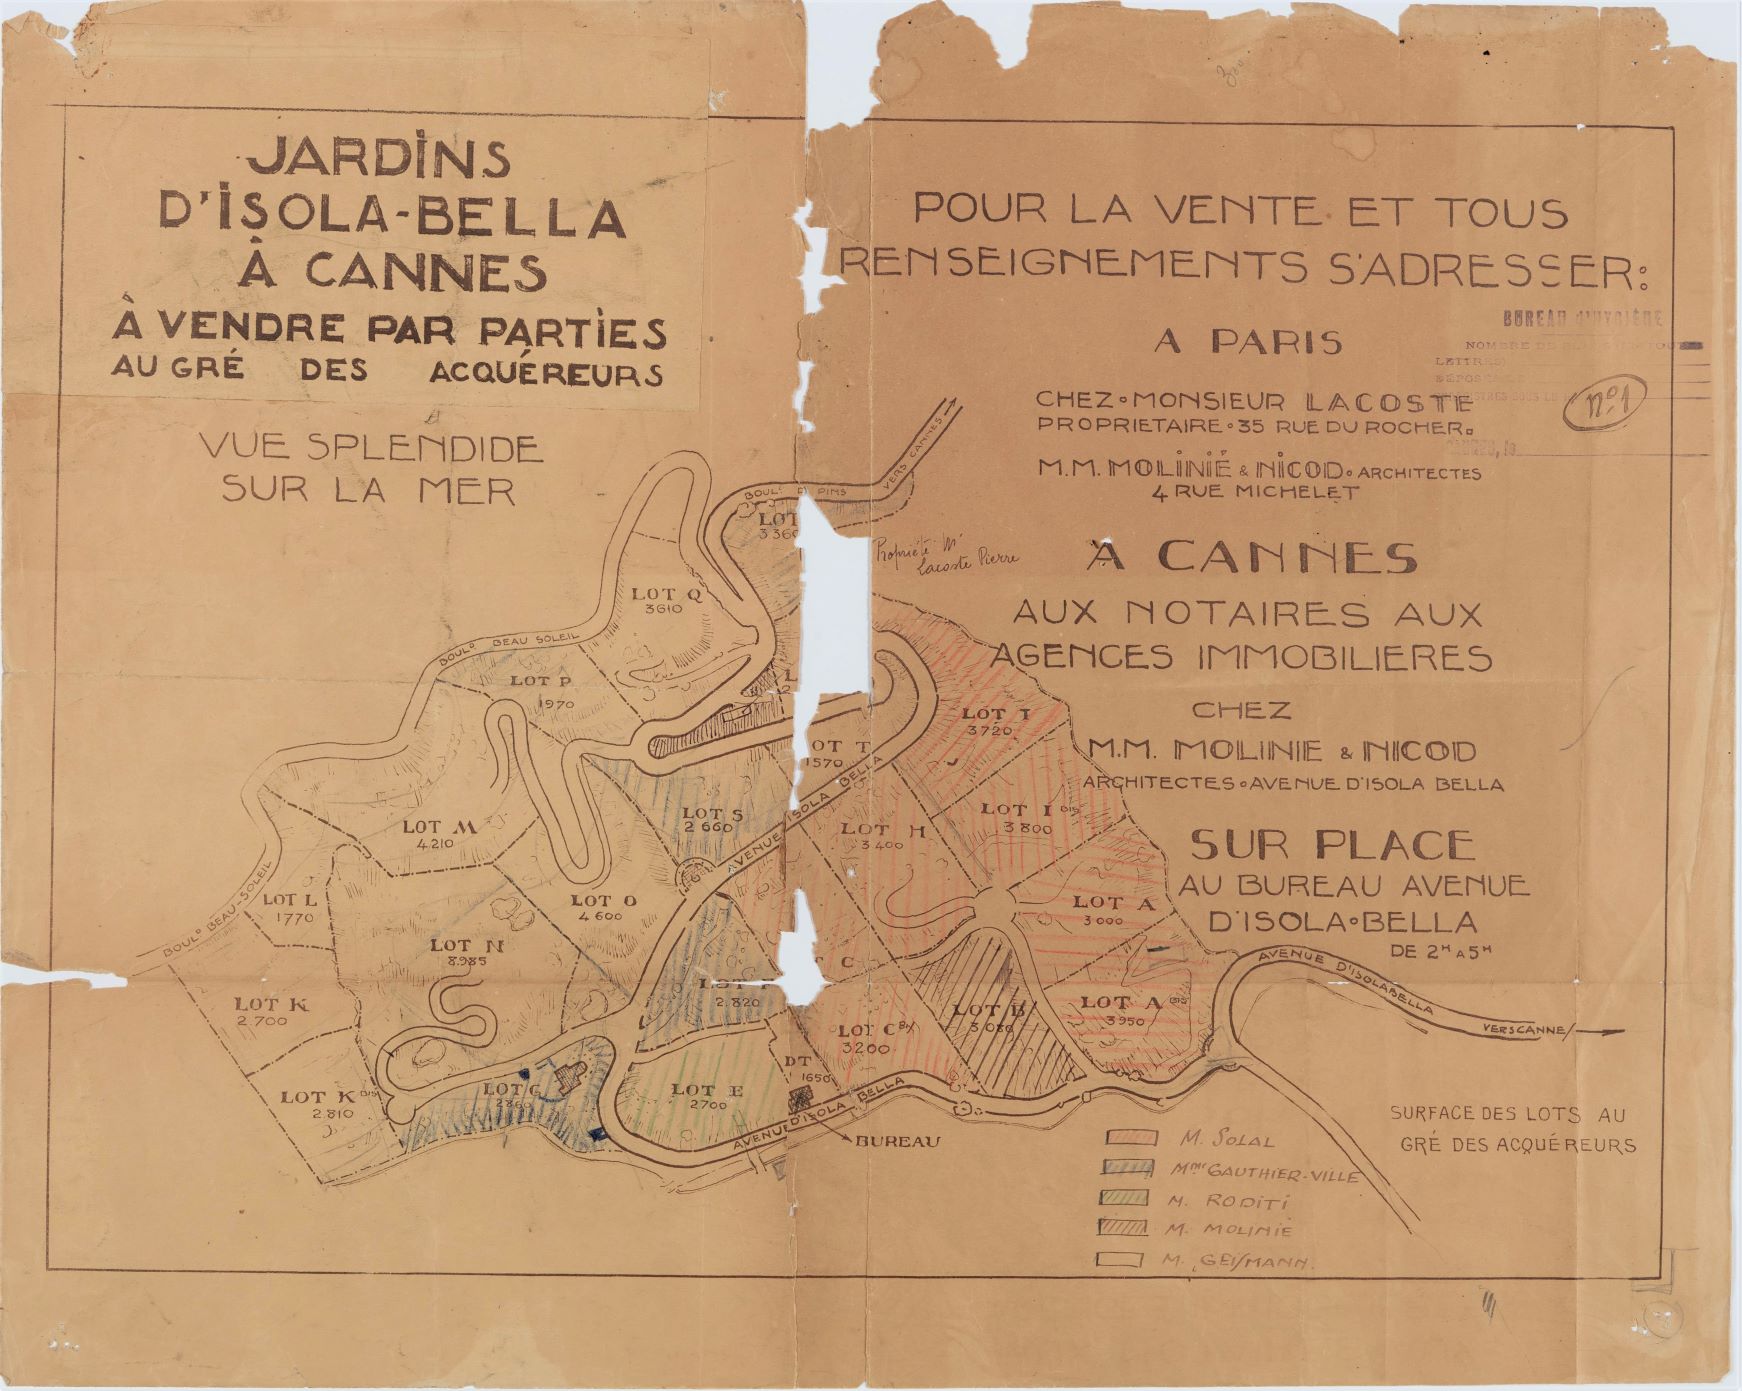 JARDINS
D'ISOLA-BELLA
À CANNES
À VENDRE PAR PARTIES
AU GRÉ DES ACQUÉREURS
VUE SPLENDIDE
SUR LA MER
POUR LA VENTE ET TOUS
RENSEIGNEMENTS S'ADRESSER:
A PARIS
CHEZ MONSIEUR LACOSTE
PROPRIETAIRE 35 RUE DU ROCHER.
M.M. MOLINIÉ & NICOD ARCHITECTES
4 RUE MICHELET
À CANNES
AUX NOTAIRES AUX
AGENCES IMMOBILIERES
CHEZ
M.M. MOLINIE & NICOD
ARCHITECTES AVENUE D'ISOLA BELLA
SUR PLACE
AU BUREAU AVENUE
D'ISOLA BELLA
DE 2H A 5H
BUREAU D'HYGIÈNE
NOMBRE DE
LETTRES
No 1
30
VERS CANNES
BOULD PINS
LOT
3360
Propriété Mr
Lacoste Pierre
LOT Q
3610
BOULD BEAU SOLEIL
LOT P
1970
LOT I
3720
OT T
1570
LOT I BIS
3800
LOT S
2660
LOT H
3400
AVENUE ISOLA BELLA
LOT M
4210
BOULD BEAU-SOLEIL
LOT L
1770
LOT O
4600
LOT A
3000
LOT N
8.985
C
LOT K
2.700
2.820
LOT B
3080
LOT A BIS
3950
LOT C Bis
3200
AVENUE D'ISOLABELLA
VERS CANNES
LOT K BIS
2.810
LOT G
2860
LOT E
2700
DT
1650
AVENUE D'ISOLA BELLA
BUREAU
SURFACE DES LOTS AU
GRÉ DES ACQUÉREURS
M. SOLAL
Mme GAUTHIER-VILLE
M. RODITI
M. MOLINIÉ
M. GEISMANN.